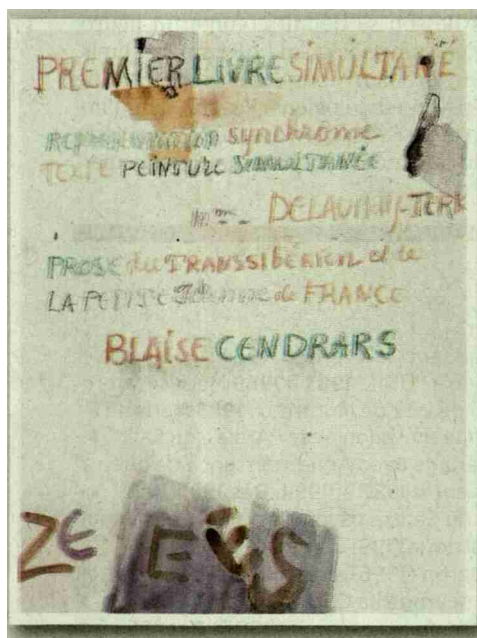 PREMIER LIVRE SIMULTANÉ
REPRÉSENTATION synchrome
TEXTE PEINTURE SIMULTANÉE
Mme - DELAUNAY-TERK
PROSE du TRANSSIBÉRIEN et de
LA PETITE Jehanne de FRANCE
BLAISE CENDRARS